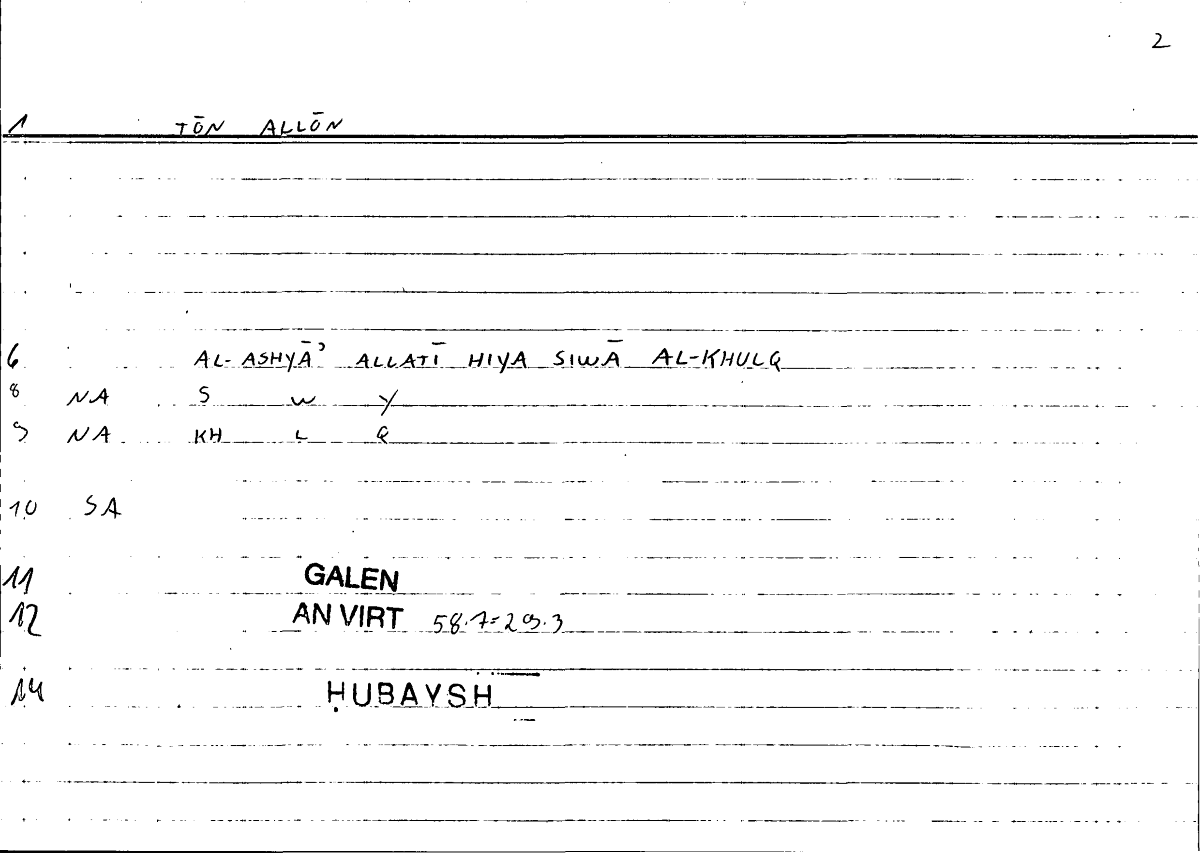 2
1 TŌN ALLŌN
6 AL-ASHYĀʾ ALLATĪ HIYA SIWĀ AL-KHULQ
8 NA S W Y
9 NA KH L Q
10 SA
11 GALEN
12 AN VIRT 58.7=29.3
14 ḤUBAYSH